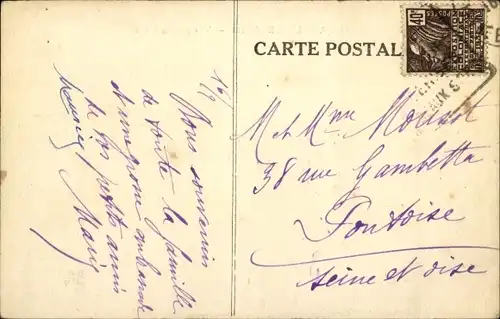 CARTE POSTALE
POSTES
40
16/9
Bons souvenirs
de toute la famille
et une grosse embrassade
de vos petits amis
Maurice Marie
M et Mme Moussot
38 rue Gambetta
Pontoise
Seine et Oise